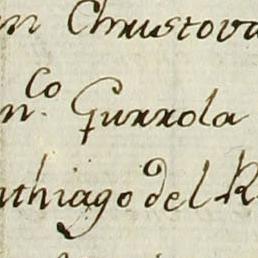 n Christova
n.co Gurrola
nthiago del R